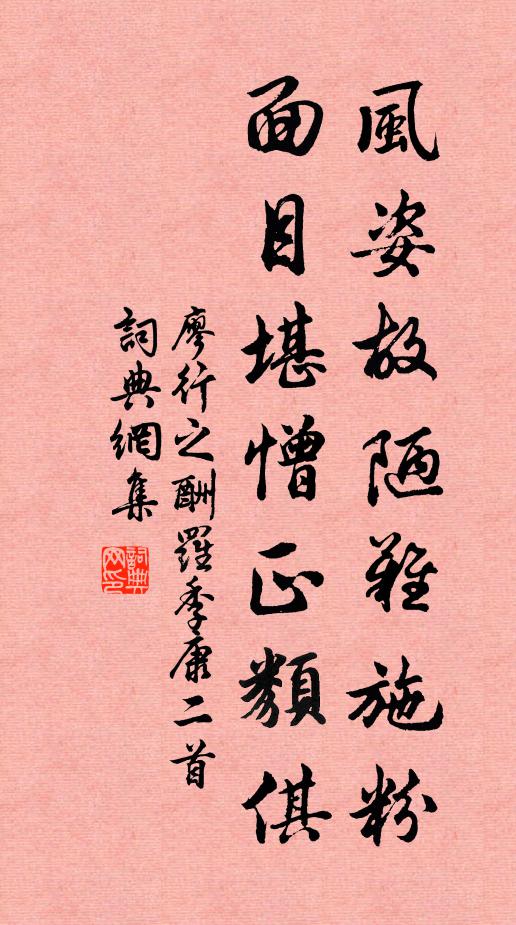 風姿故陋難施粉
面目堪憎正類倛
廖行之酬羅季康二首
詞典網集
詞典網印